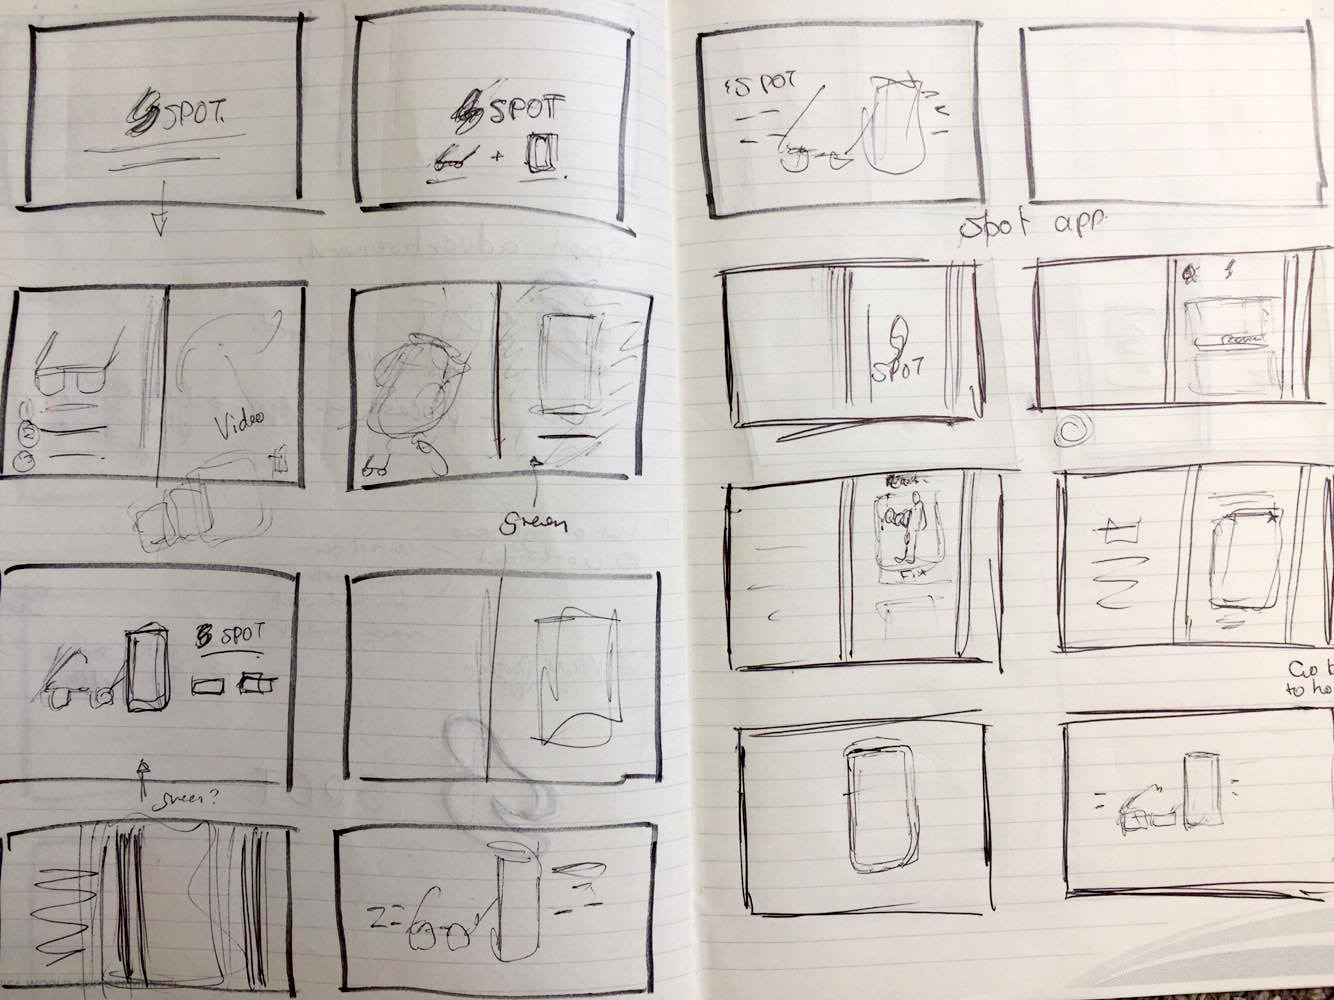 SPOT.
SPOT
Video
Green
SPOT
Green?
SPOT
Spot app.
SPOT
Fix
Go b
to ho